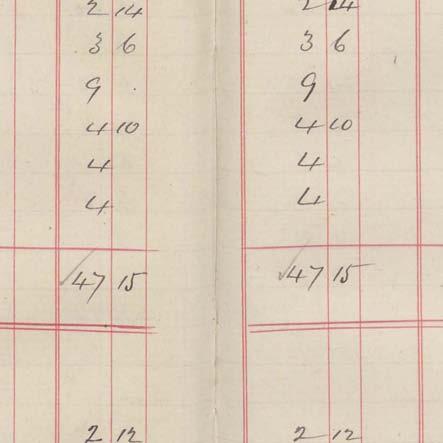 2 14 2 14
3 6 3 6
9 9
4 10 4 10
4 4
4 4
47 15 47 15
2 12 2 12